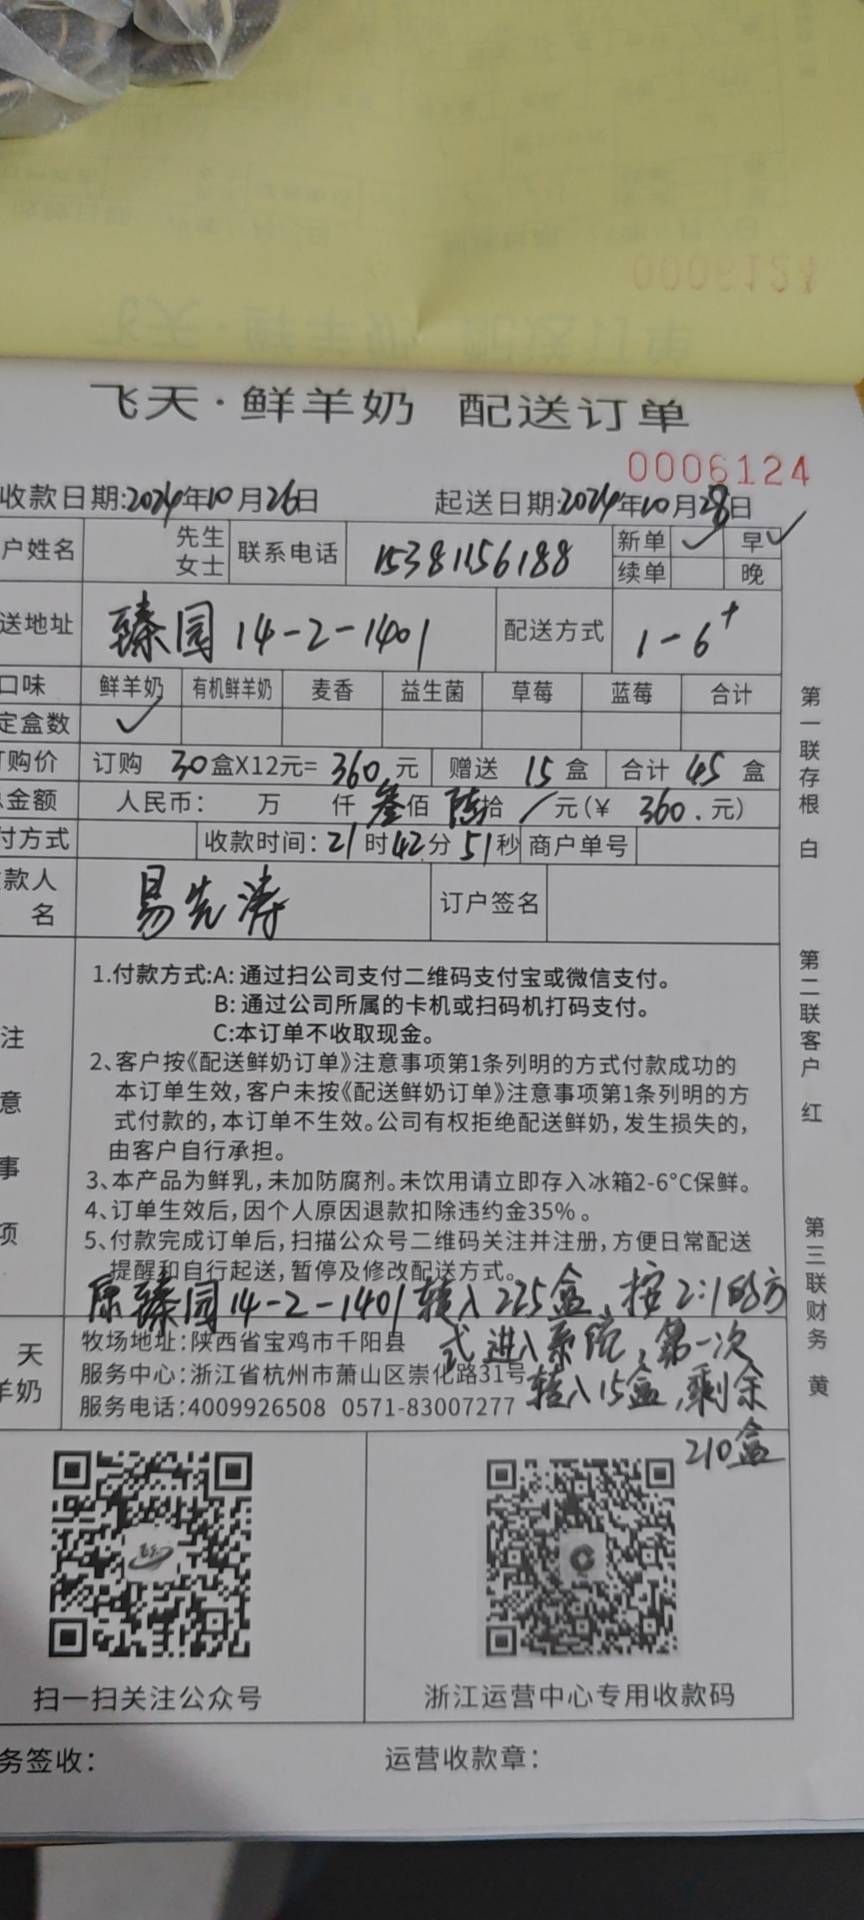 0006124
飞天·鲜羊奶 配送订单
0006124
收款日期:2024年10月26日 起送日期:2024年10月28日
户姓名 先生 女士 联系电话 15381156188 新单 ✓ 早 ✓
续单 晚
送地址 臻园14-2-1401 配送方式 1-6+
口味 鲜羊奶 有机鲜羊奶 麦香 益生菌 草莓 蓝莓 合计
定盒数 ✓
订购价 订购 30盒X12元= 360.元 赠送 15 盒 合计 45 盒
总金额 人民币: 万 仟 叁佰 陆拾 / 元(¥ 360.元)
付方式 收款时间: 21时42分51秒 商户单号
款人 名 易先涛 订户签名
注意事项
1.付款方式:A: 通过扫公司支付二维码支付宝或微信支付。
B: 通过公司所属的卡机或扫码机打码支付。
C:本订单不收取现金。
2、客户按《配送鲜奶订单》注意事项第1条列明的方式付款成功的
本订单生效,客户未按《配送鲜奶订单》注意事项第1条列明的方
式付款的,本订单不生效。公司有权拒绝配送鲜奶,发生损失的,
由客户自行承担。
3、本产品为鲜乳,未加防腐剂。未饮用请立即存入冰箱2-6°C保鲜。
4、订单生效后,因个人原因退款扣除违约金35%。
5、付款完成订单后,扫描公众号二维码关注并注册,方便日常配送
提醒和自行起送,暂停及修改配送方式。
原臻园14-2-1401转入225盒,按2:1的方
式进入系统,第一次
转入15盒,剩余
210盒
天
羊奶
牧场地址:陕西省宝鸡市千阳县
服务中心:浙江省杭州市萧山区崇化路31号
服务电话:4009926508 0571-83007277
扫一扫关注公众号 浙江运营中心专用收款码
务签收: 运营收款章:
第一联存根 白
第二联客户 红
第三联财务 黄